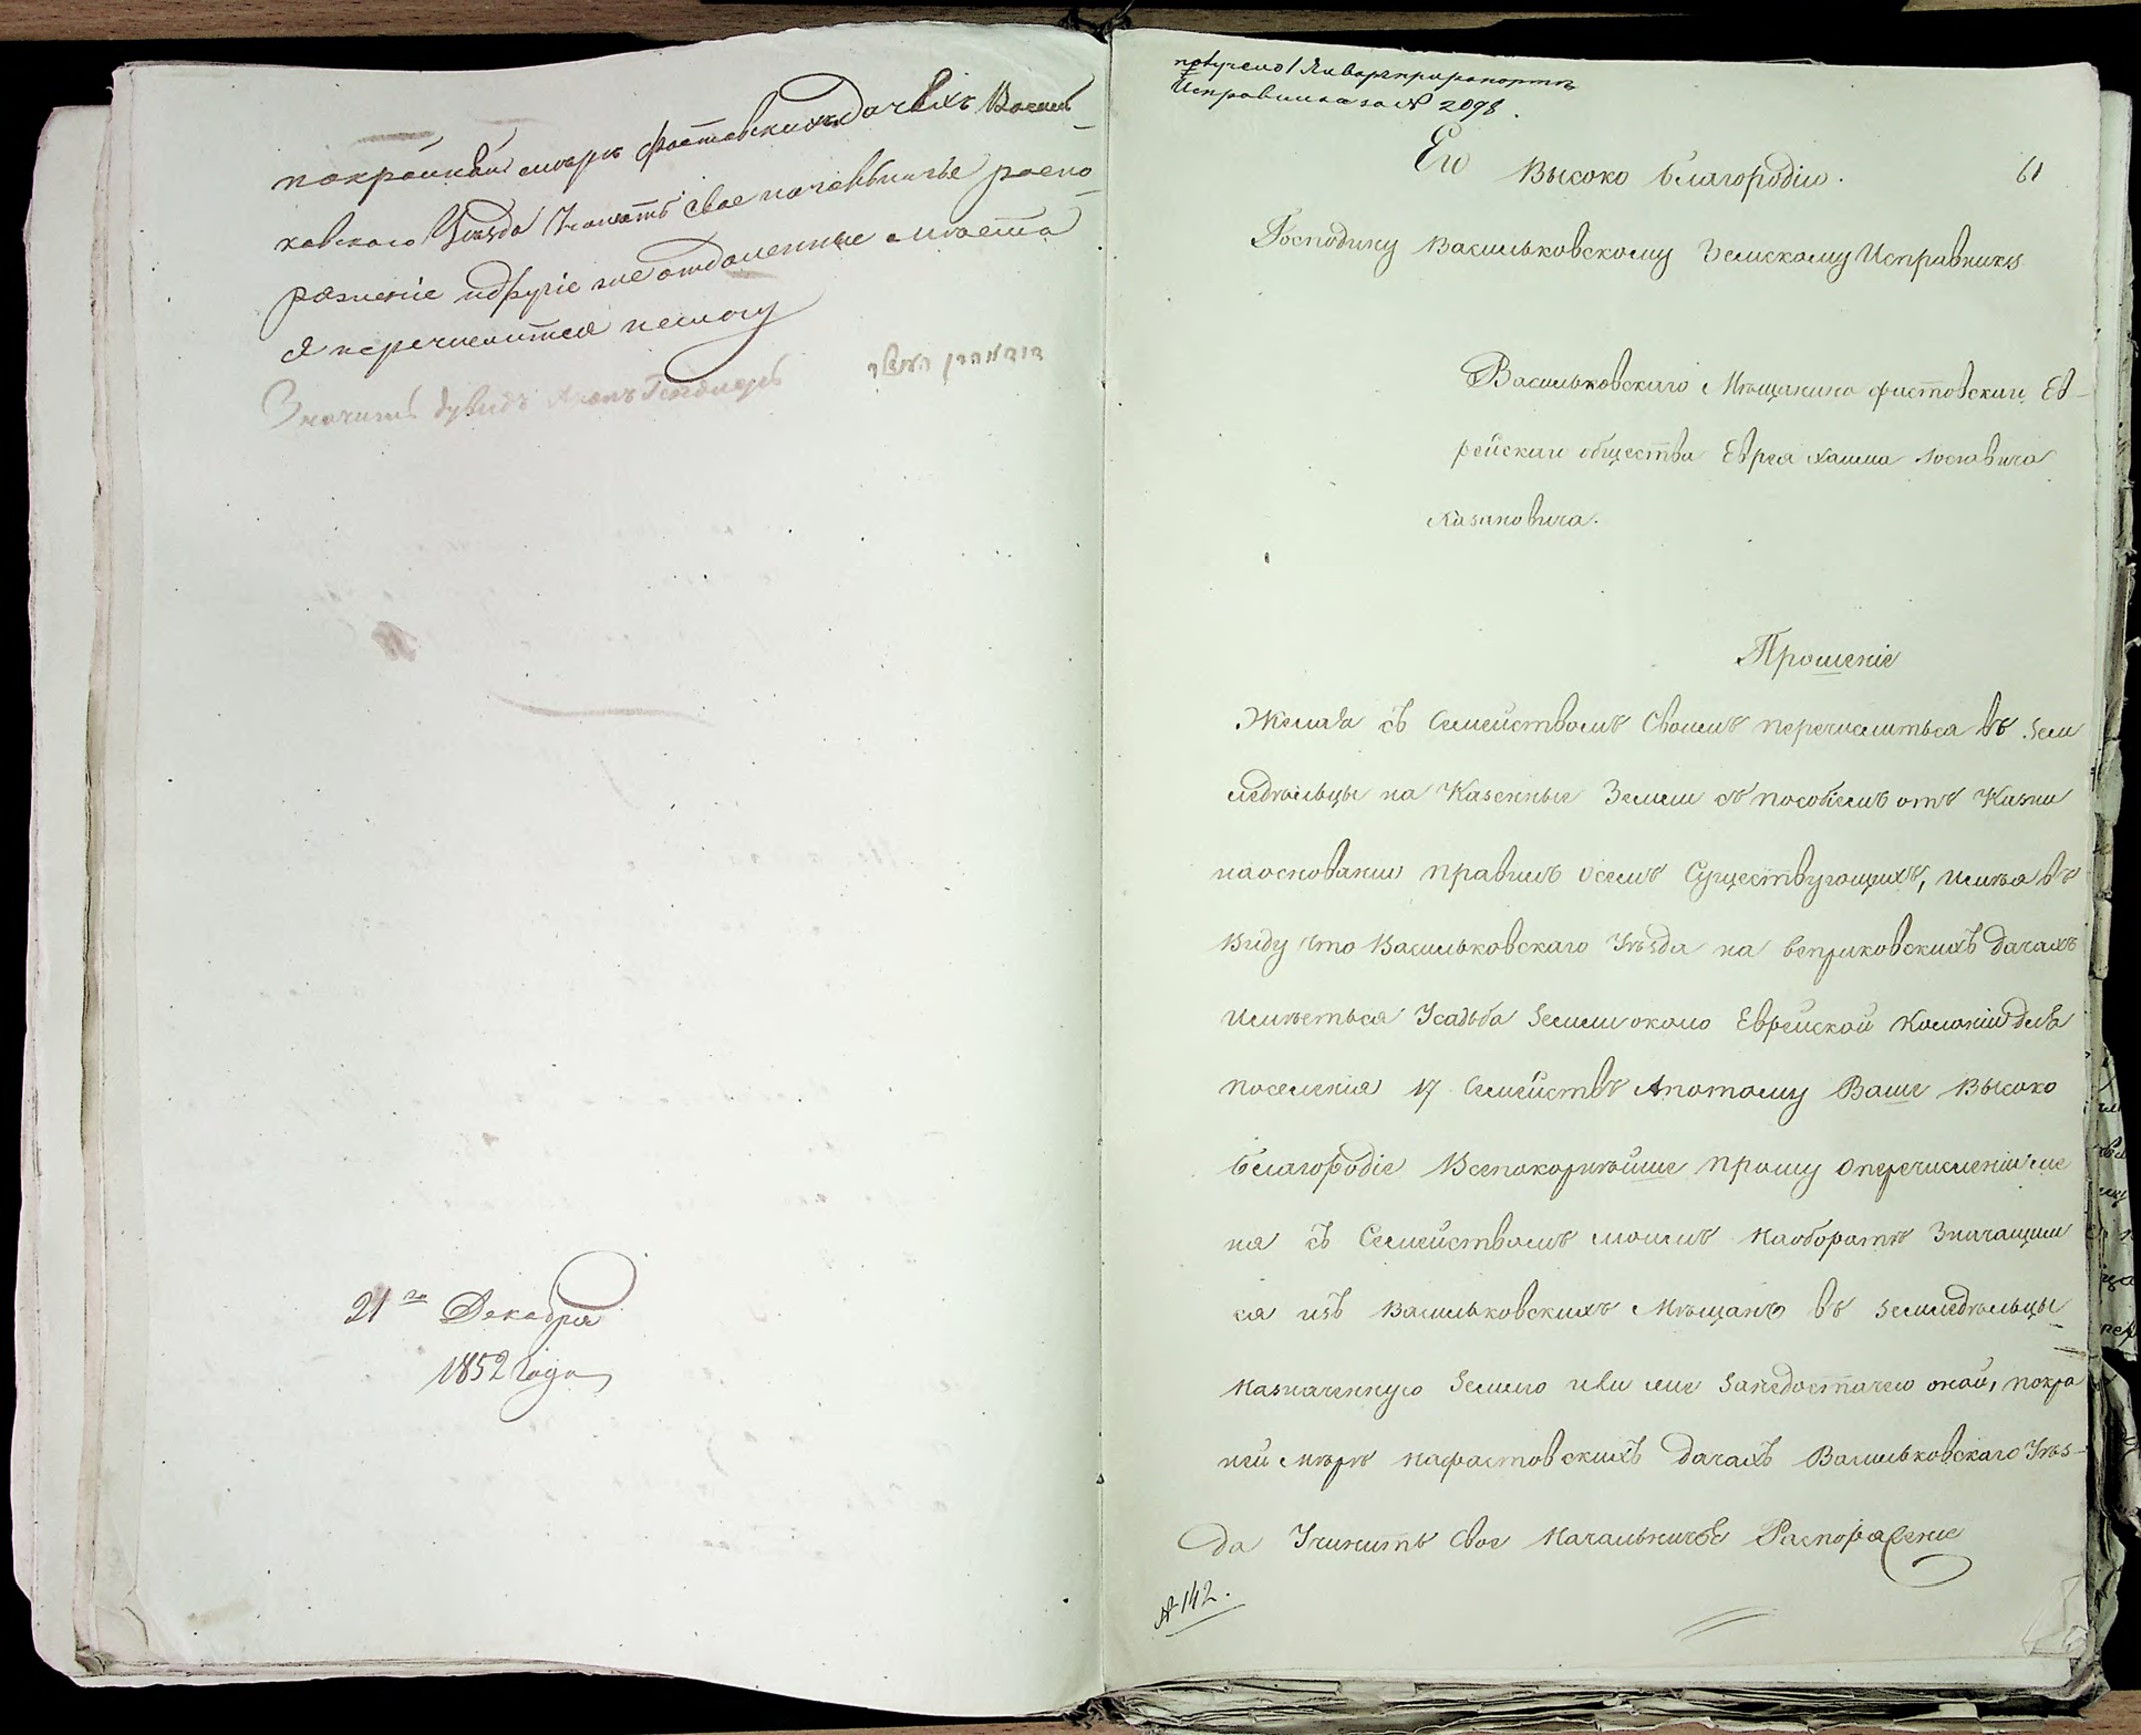 покрайней мѣрѣ фастовскихъ дачахъ Василь
ковского Уѣзда Учинить свое начальничье распо
ряжение идругіе же отдаленные мѣста
я перечислится немогу
Значитъ Дувидъ
21го Декабря
1852 года
получено 1 Января при рапортѣ
Исправника за № 2098.
Его Высоко благородію.
61
Господину Васильковскому Земскому Исправнику
Васильковскаго Мѣщанина фастовскаго Ев-
рейскаго общества Еврея Хаима Іосіовича
Казановича.
Прошеніе
Желая съ Семействомъ Своимъ перечислиться въ Зем
ледѣльцы на Казенные Земли съ пособіемъ отъ Казны
наосновании правилъ осемъ Существующихъ, имѣя въ
виду что Васильковскаго Уѣзда на веприковскихъ дачахъ
имѣеться Усадьба Земли около Еврейской Колоніи для
поселенія 17 Семействъ Апотому Ваше Высоко
благородіе Всепокорнѣйше прошу оперечисленіи ме
ня съ Семействомъ моимъ наоборотѣ Значащим
ся изъ Васильковскихъ Мѣщанъ въ земледѣльцы
назначенную Землю или же Занедостачею оной, покра
ней мѣрѣ нафастовскихъ дачахъ Васильковскаго Уѣз-
да Учинить Свое Начальничье Распоряжение
№ 142.